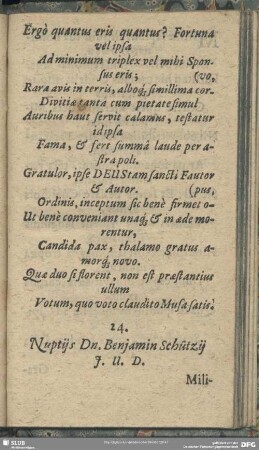 Ergò quantus eris quantus? Fortuna
vel ipsa
Ad minimum triplex vel mihi Spon-
sus eris; (vo,
Rara avis in terris, alboq́; simillima cor-
Divitia tanta cum pietate simul
Auribus haut servit calamus, testatur
id ipsa
Fama, & fert summâ laude per a-
stra poli.
Gratulor, ipse DEUS tam sancti Fautor
& Autor. (pus,
Ordinis, inceptum sic benè firmet o-
Ut benè conveniant unaq́; & in æde mo-
rentur,
Candida pax, thalamo gratus a-
morq́; novo.
Quæ duo si florent, non est præstantius
ullum
Votum, quo voto claudito Musa satis.
24.
Nuptijs Dn. Benjamin Schützij
J. U. D.
Mili-
SLUB
DFG